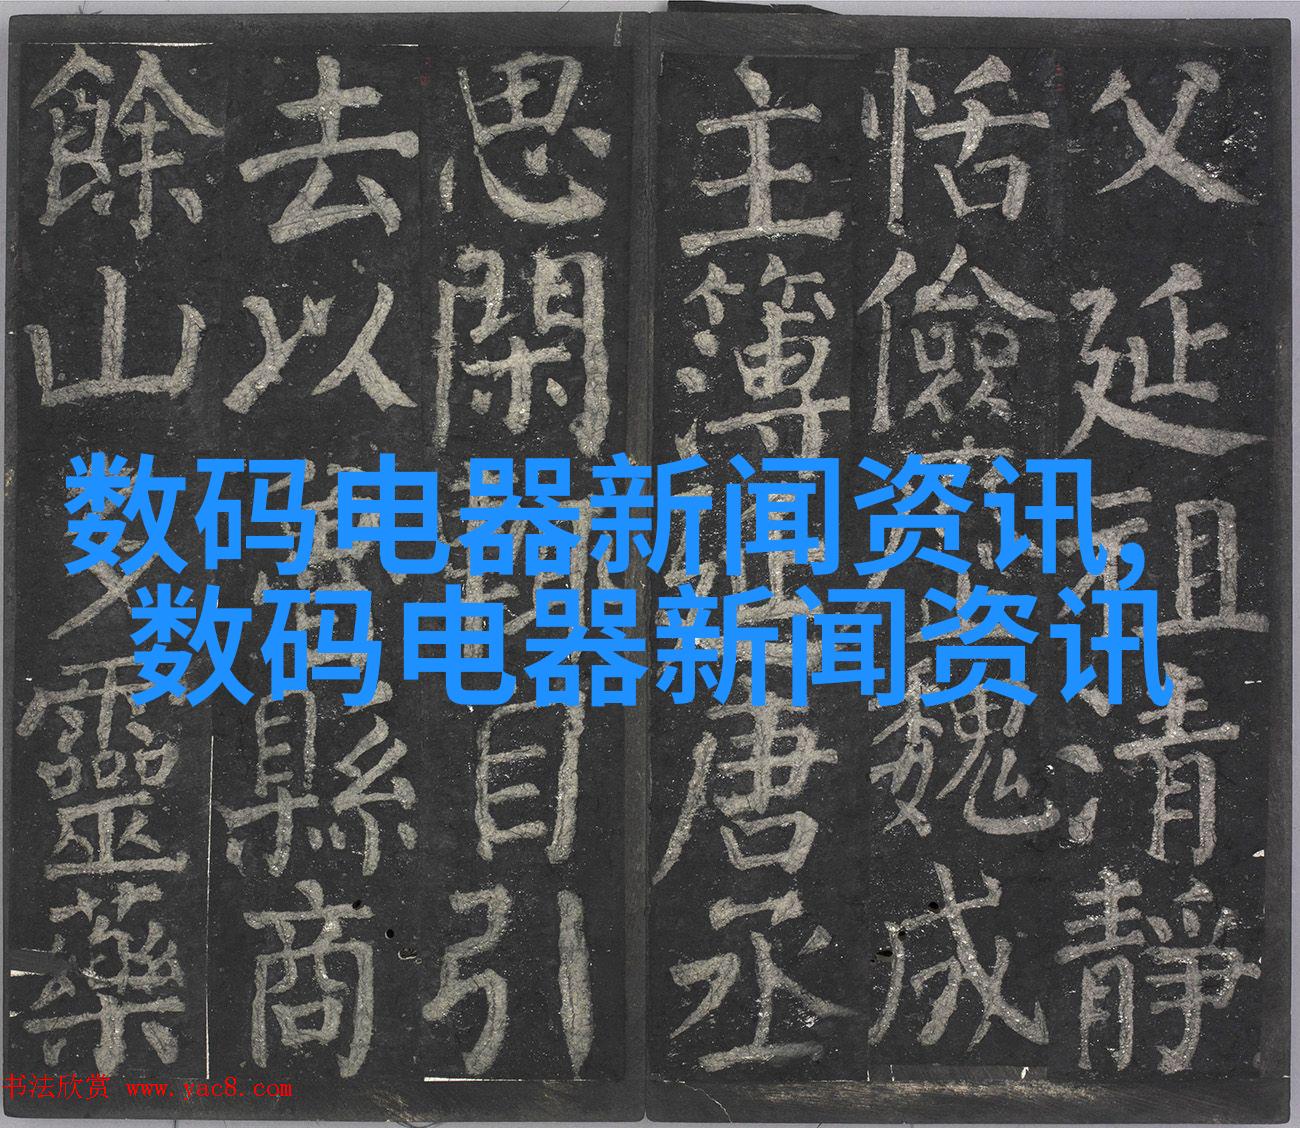 数码电器新闻资讯,
数码电器新闻资讯
父延祖清靜
恬儉魏成
主簿唐丞
思閑目引
去以縣商
餘山多靈藥
书法欣赏 www.yac8.com